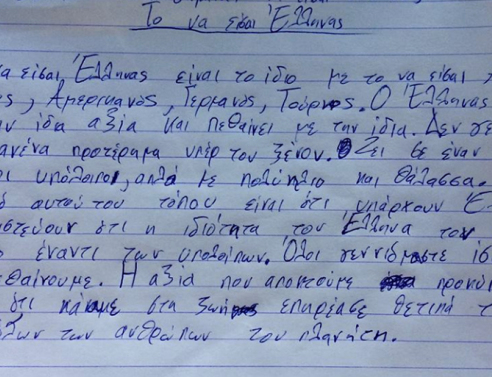 Το να είσαι Έλληνας
να είσαι Έλληνας είναι το ίδιο με το να είσαι
, Αμερικανός, Γερμανός, Τούρκος. Ο Έλληνας
ίδια αξία και πεθαίνει με την ίδια. Δεν
κανένα προτέρημα υπέρ του ξένου. Ζει σε έναν
υπόλοιποι, αλλά με πολύ ήλιο και θάλασσα.
αυτού του τόπου είναι ότι υπάρχουν
ότι η ιδιότητα του Έλληνα τον
έναντι των υπολοίπων. Όλοι γεννιόμαστε
πεθαίνουμε. Η αξία που αποκτούμε
ότι κάναμε στη ζωή επηρέασε θετικά
των ανθρώπων του πλανήτη.